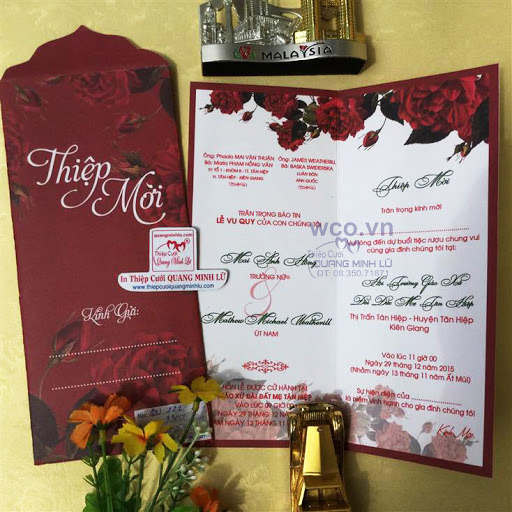 MALAYSIA
Thiệp
Mời
quangminhlu.com
Thiệp Cưới
Quang Minh Lũ
In Thiệp Cưới QUANG MINH LŨ
www.thiepcuoiquangminhlu.com
Kính Gửi:
Ông: Phaolo MAI VĂN THUẬN
Bà: Maria PHẠM HỒNG VÂN
TÂN HIỆP - KIÊN GIANG
Ông: JAMES WEATHERILL
Bà: BASKA SWIDERSKA
LUÂN ĐÔN
ANH QUỐC
TRÂN TRỌNG BÁO TIN
LỄ VU QUY CỦA CON CHÚNG TÔI
Mai Anh Hồng
TRƯỞNG NỮ
&
Mathew Michael Weatherill
ÚT NAM
HÔN LỄ ĐƯỢC CỬ HÀNH TẠI
GIÁO XỨ ĐÀI ĐẤT MẸ TÂN HIỆP
VÀO LÚC 09 GIỜ
NGÀY 29 THÁNG 12
NGÀY 13 THÁNG 11
Thiệp Mời
Trân trọng kính mời
wco.vn
Thiệp Cưới
QUANG MINH LŨ
DT: 08.350.71871
đến dự buổi tiệc rượu chung vui
cùng gia đình chúng tôi tại:
Hội Trường Giáo Xứ
Đài Đức Mẹ Tân Hiệp
Thị Trấn Tân Hiệp - Huyện Tân Hiệp
Kiên Giang
Vào lúc 11 giờ 00
Ngày 29 tháng 12 năm 2015
(Nhằm ngày 13 tháng 11 năm Ất Mùi)
Sự hiện diện của
là niềm vinh hạnh cho gia đình chúng tôi
Kính Mời